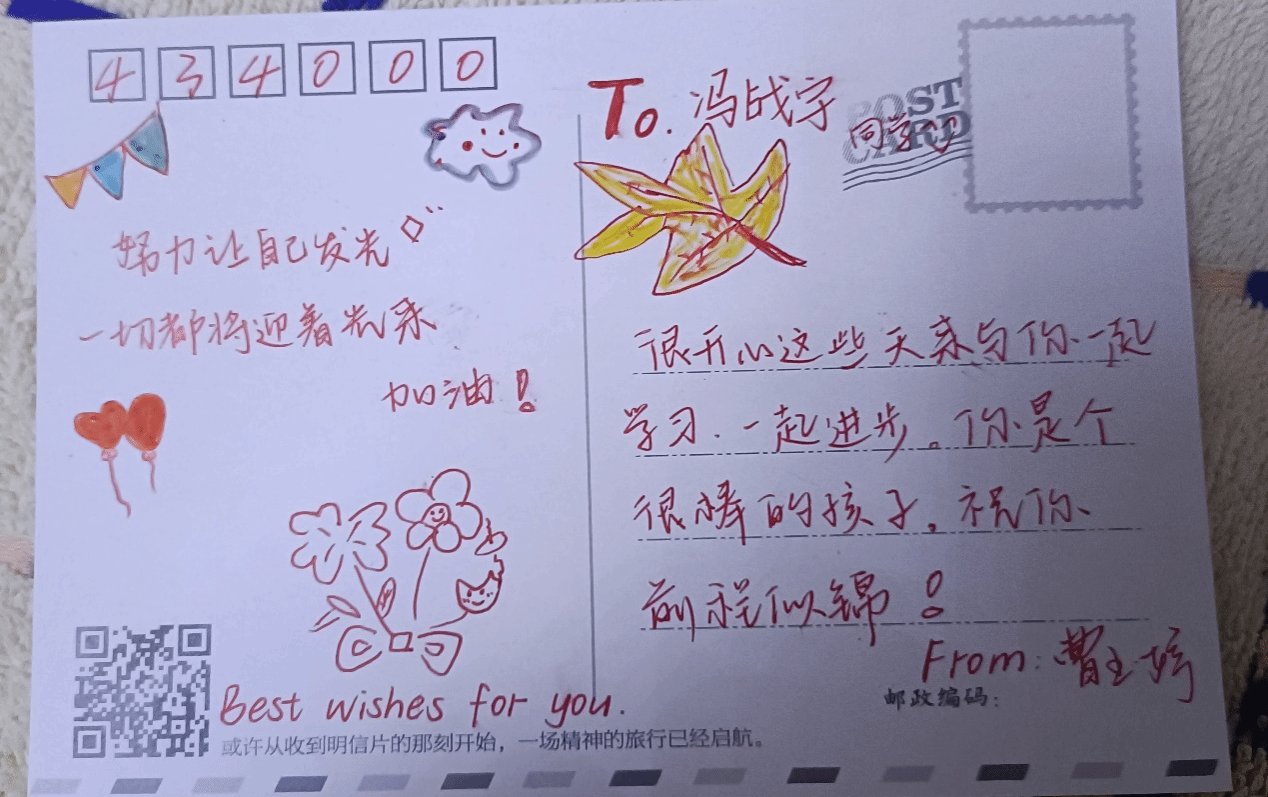 434000
To. 冯战宇
POST CARD
同学
努力让自己发光
一切都将迎着光来
加油!
很开心这些天来与你一起
学习、一起进步。你是个
很棒的孩子,祝你
前程似锦!
From: 曹玉婷
邮政编码:
Best wishes for you.
或许从收到明信片的那刻开始,一场精神的旅行已经启航。